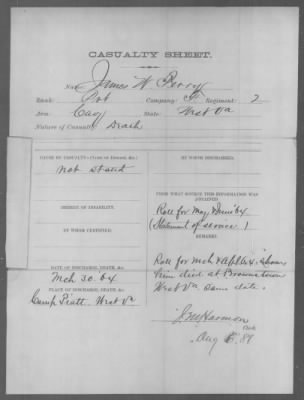 CASUALTY SHEET.
Name James W. Perry
Rank: Pvt Company: F Regiment: 2
Arm: Cavy State: West Va
Nature of Casualty Death
CAUSE OF CASUALTY—(NAME OF DISEASE, &c.)
not stated
DEGREE OF DISABILITY.
BY WHOM CERTIFIED.
DATE OF DISCHARGE, DEATH, &c.
Mch 30. 64
PLACE OF DISCHARGE, DEATH, &c.
Camp Piatt West Va
BY WHOM DISCHARGED.
FROM WHAT SOURCE THIS INFORMATION WAS OBTAINED
Roll for May & June 64
(Statement of service)
REMARKS.
Roll for Mch & Apl 64. shows
him died at Brownstown
West Va same date.
Harmon
Clerk.
Aug 87